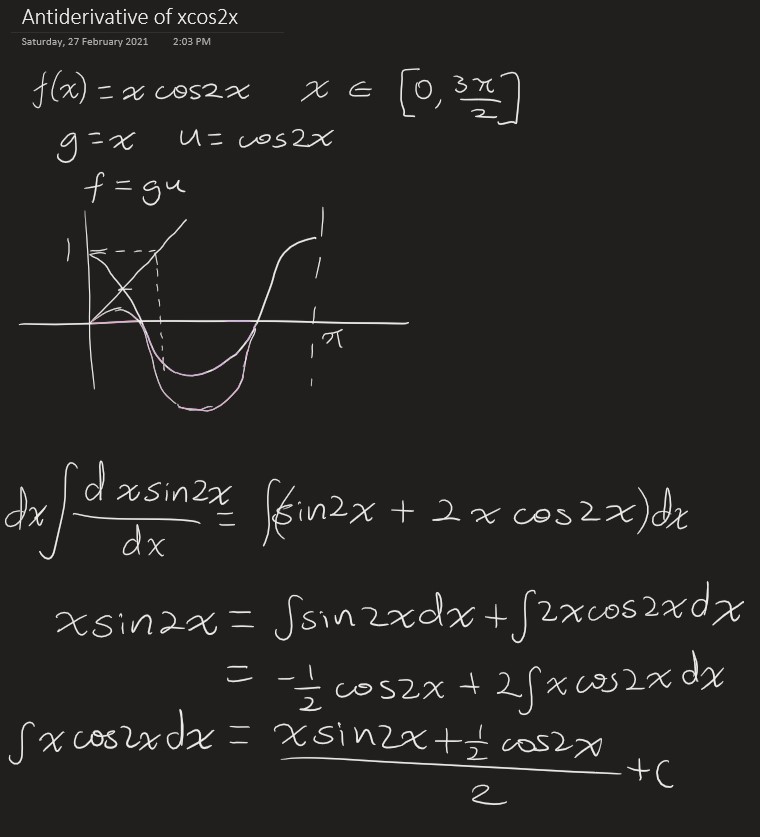 Antiderivative of xcos2x
Saturday, 27 February 2021 2:03 PM
f(x) = x cos2x x ∈ [0, 3π/2]
g = x u = cos2x
f = gu
1
π
dx ∫ d xsin2x/dx = ∫(sin2x + 2x cos2x)dx
xsin2x = ∫sin2xdx + ∫2xcos2xdx
= -1/2 cos2x + 2∫xcos2x dx
∫xcos2xdx = (xsin2x + 1/2 cos2x)/2 + C